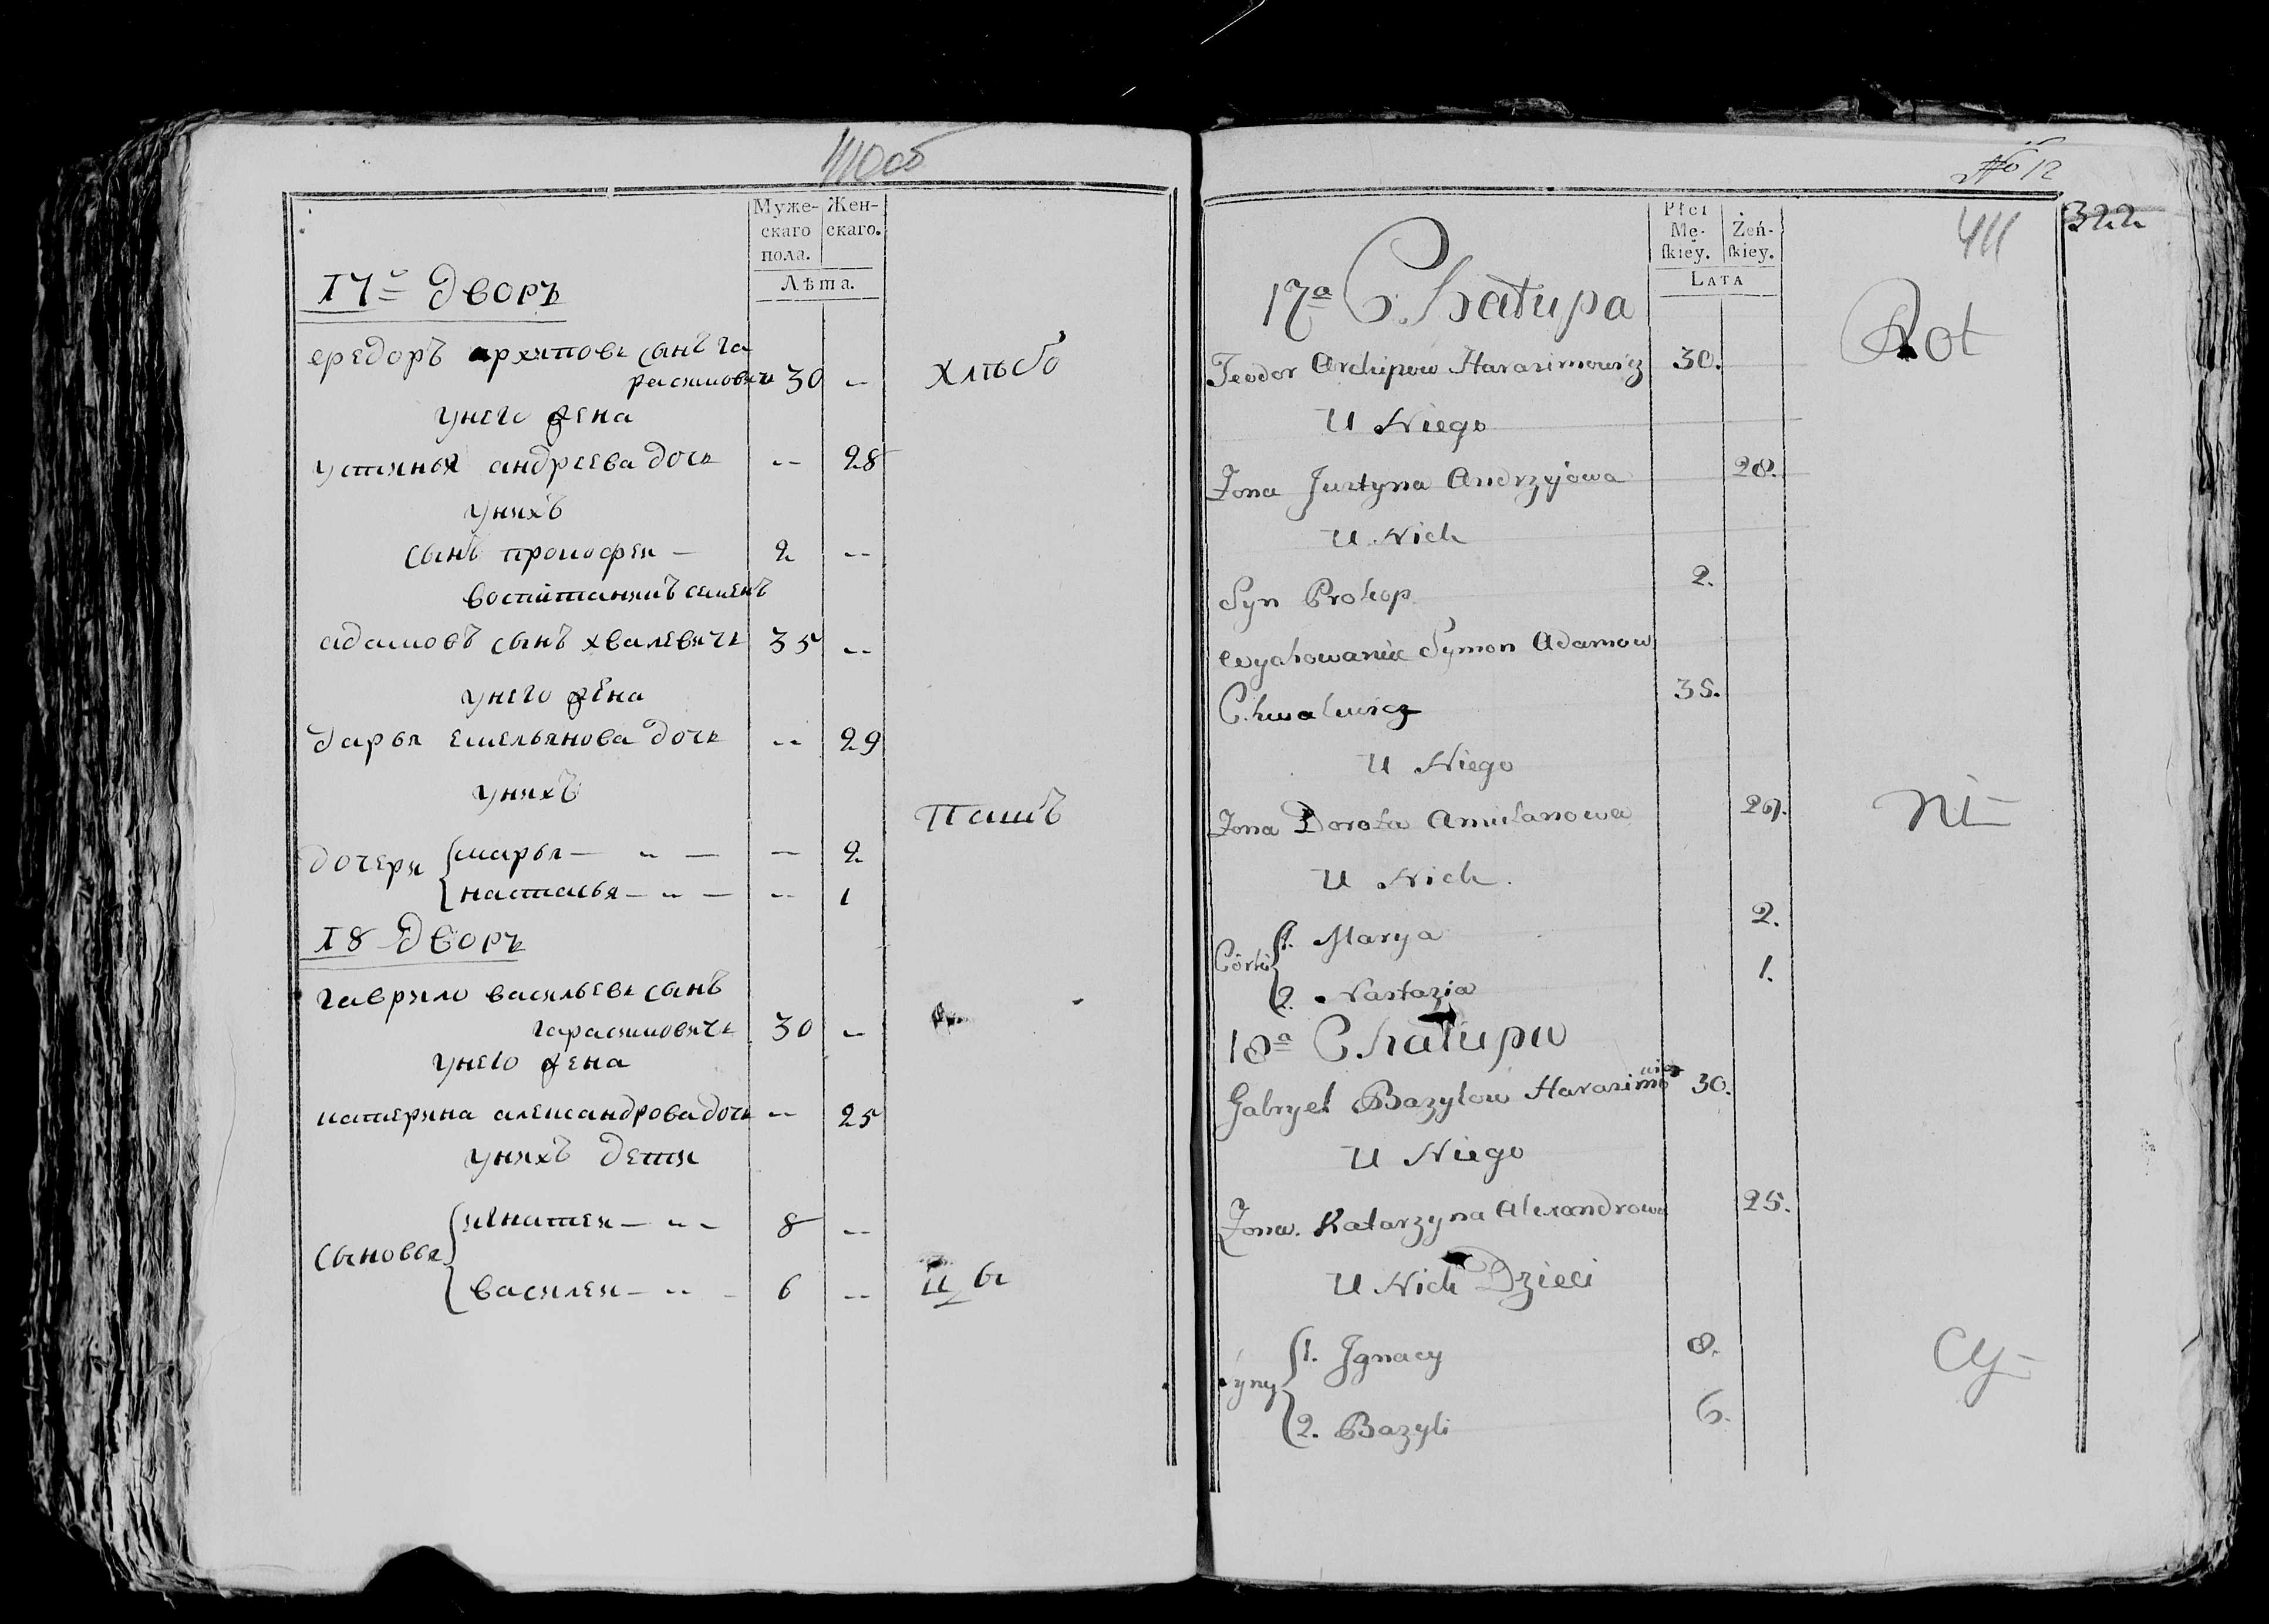 410 об
Муже-
скаго
пола.
Жен-
скаго.
Лѣта.
17й Дворъ
Ѳедоръ архиповъ сынъ га
расимовичъ 30 --
хлѣбо
унего жена
устинья андреева дочь -- 28
унихъ
сынъ прокофеи — 2 --
воспитаникъ семенъ
адамовъ сынъ хвалевичь 35 --
унего жена
дарья емельянова дочь -- 29
унихъ
пашъ
дочери { марья — „ — — 2
настасья — „ — -- 1
18 Дворъ
гаврило васильевъ сынъ
гарасимовичь 30 --
унего жена
катерина александрова дочь -- 25
унихъ дети
сыновья { игнатеи — „ — 8 --
василеи — „ - 6 --
цы
№ 12
411
322
Płci
Mę-
skiey.
Żeń-
skiey.
LATA
17a Chałupa
Rol
Teodor Archipow Harasimowicz 30.
U Niego
Żona Justyna Andrzejowa 28.
U Nich
Syn Prokop 2.
wychowaniec Symon Adamow
Chwalewicz 35.
U Niego
Żona Dorota Amilanowa 29.
ni-
U Nich.
Córki { 1. Marya 2.
2. Nastazia 1.
18a Chałupa
Gabryel Bazylow Harasimowicz 30.
U Niego
Żona. Katarzyna Alexandrowa 25.
U Nich Dzieci
yny { 1. Jgnacy 8.
2. Bazyli 6.
cy-